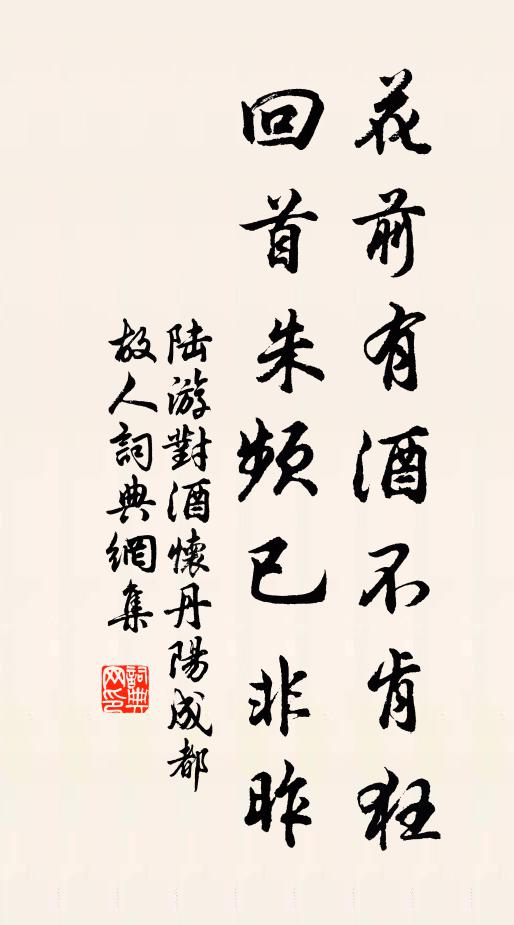 花前有酒不肯狂
回首朱頻已非昨
陸游對酒懷丹陽成都
故人詞典網集
詞典
网印